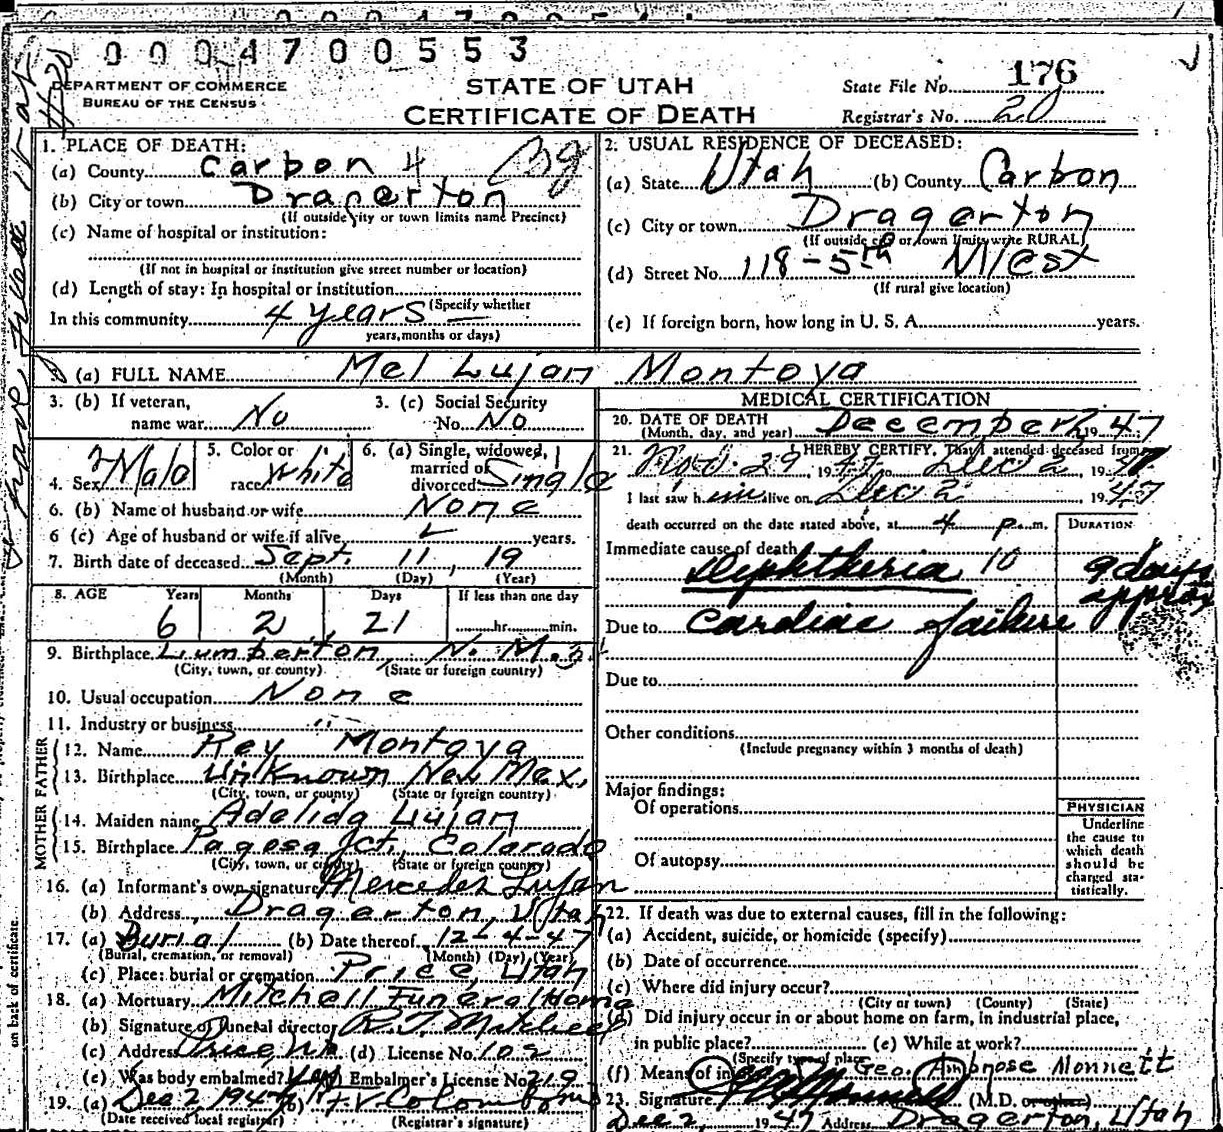 0004700553
DEPARTMENT OF COMMERCE
BUREAU OF THE CENSUS
STATE OF UTAH
CERTIFICATE OF DEATH
State File No. 176
Registrar's No. 20
1. PLACE OF DEATH:
(a) County Carbon 4
(b) City or town Dragerton
(If outside city or town limits name Precinct)
(c) Name of hospital or institution:
(If not in hospital or institution give street number or location)
(d) Length of stay: In hospital or institution
(Specify whether
In this community 4 years
years, months or days)
2. USUAL RESIDENCE OF DECEASED:
(a) State Utah (b) County Carbon
(c) City or town Dragerton
(If outside city or town limits write RURAL)
(d) Street No. 118-5th West
(If rural give location)
(e) If foreign born, how long in U. S. A. years.
3 (a) FULL NAME Mel Lujan Montoya
3. (b) If veteran,
name war No
3. (c) Social Security
No. No
4. Sex Male
5. Color or
race White
6. (a) Single, widowed,
married or
divorced Single
6. (b) Name of husband or wife None
6 (c) Age of husband or wife if alive years.
7. Birth date of deceased Sept. 11, 19
(Month) (Day) (Year)
8. AGE Years Months Days If less than one day
6 2 21 hr. min.
9. Birthplace Lumberton, N. M.
(City, town, or county) (State or foreign country)
10. Usual occupation None
11. Industry or business "
FATHER
12. Name Rey Montoya
13. Birthplace Unknown New Mex.
(City, town, or county) (State or foreign country)
MOTHER
14. Maiden name Adelida Lujan
15. Birthplace Pagosa Jct. Colorado
(City, town, or county) (State or foreign country)
16. (a) Informant's own signature Mercedes Lujan
(b) Address Dragerton, Utah
17. (a) Burial (b) Date thereof 12-4-47
(Burial, cremation, or removal) (Month) (Day) (Year)
(c) Place: burial or cremation Price, Utah
18. (a) Mortuary Mitchell Funeral Home
(b) Signature of funeral director
(c) Address Price, Ut (d) License No. 102
(e) Was body embalmed? yes Embalmer's License No. 219
19. (a) Dec 2, 1947 (b)
(Date received local registrar) (Registrar's signature)
on back of certificate.
MEDICAL CERTIFICATION
20. DATE OF DEATH
(Month, day, and year) December 2, 1947
21. I HEREBY CERTIFY, That I attended deceased from
Nov. 29 1947 to Dec 2 1947
I last saw him alive on Dec 2 1947
death occurred on the date stated above, at 4 p. m.
DURATION
Immediate cause of death
Diphtheria 10 9 days approx
Due to Cardiac failure
Due to
Other conditions
(Include pregnancy within 3 months of death)
Major findings:
Of operations
Of autopsy
PHYSICIAN
Underline
the cause to
which death
should be
charged sta-
tistically.
22. If death was due to external causes, fill in the following:
(a) Accident, suicide, or homicide (specify)
(b) Date of occurrence
(c) Where did injury occur?
(City or town) (County) (State)
(d) Did injury occur in or about home on farm, in industrial place,
in public place? (e) While at work?
(Specify type of place)
(f) Means of Geo. Ambrose Monnett
23. Signature (M.D. or other)
Dec 2, 1947 Address Dragerton, Utah